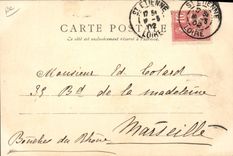 ST ETIENNE
LOIRE
ST ETIENNE
LOIRE
CARTE POSTALE
Ce côté est exclusivement réservé à l'adresse
Monsieur Ed Colard
35 Bd de la madeleine
Marseille
Bouches du Rhône